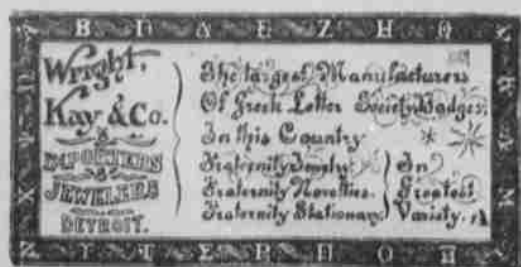 Α Β Γ Δ Ε Ζ Η Θ
Wright,
Kay & Co.
IMPORTERS
&
JEWELERS
DETROIT.
The Largest Manufacturers
Of Greek Letter Society Badges,
In this Country
Fraternity Jewelry
Fraternity Novelties.
Fraternity Stationary.
In
Greatest
Variety.